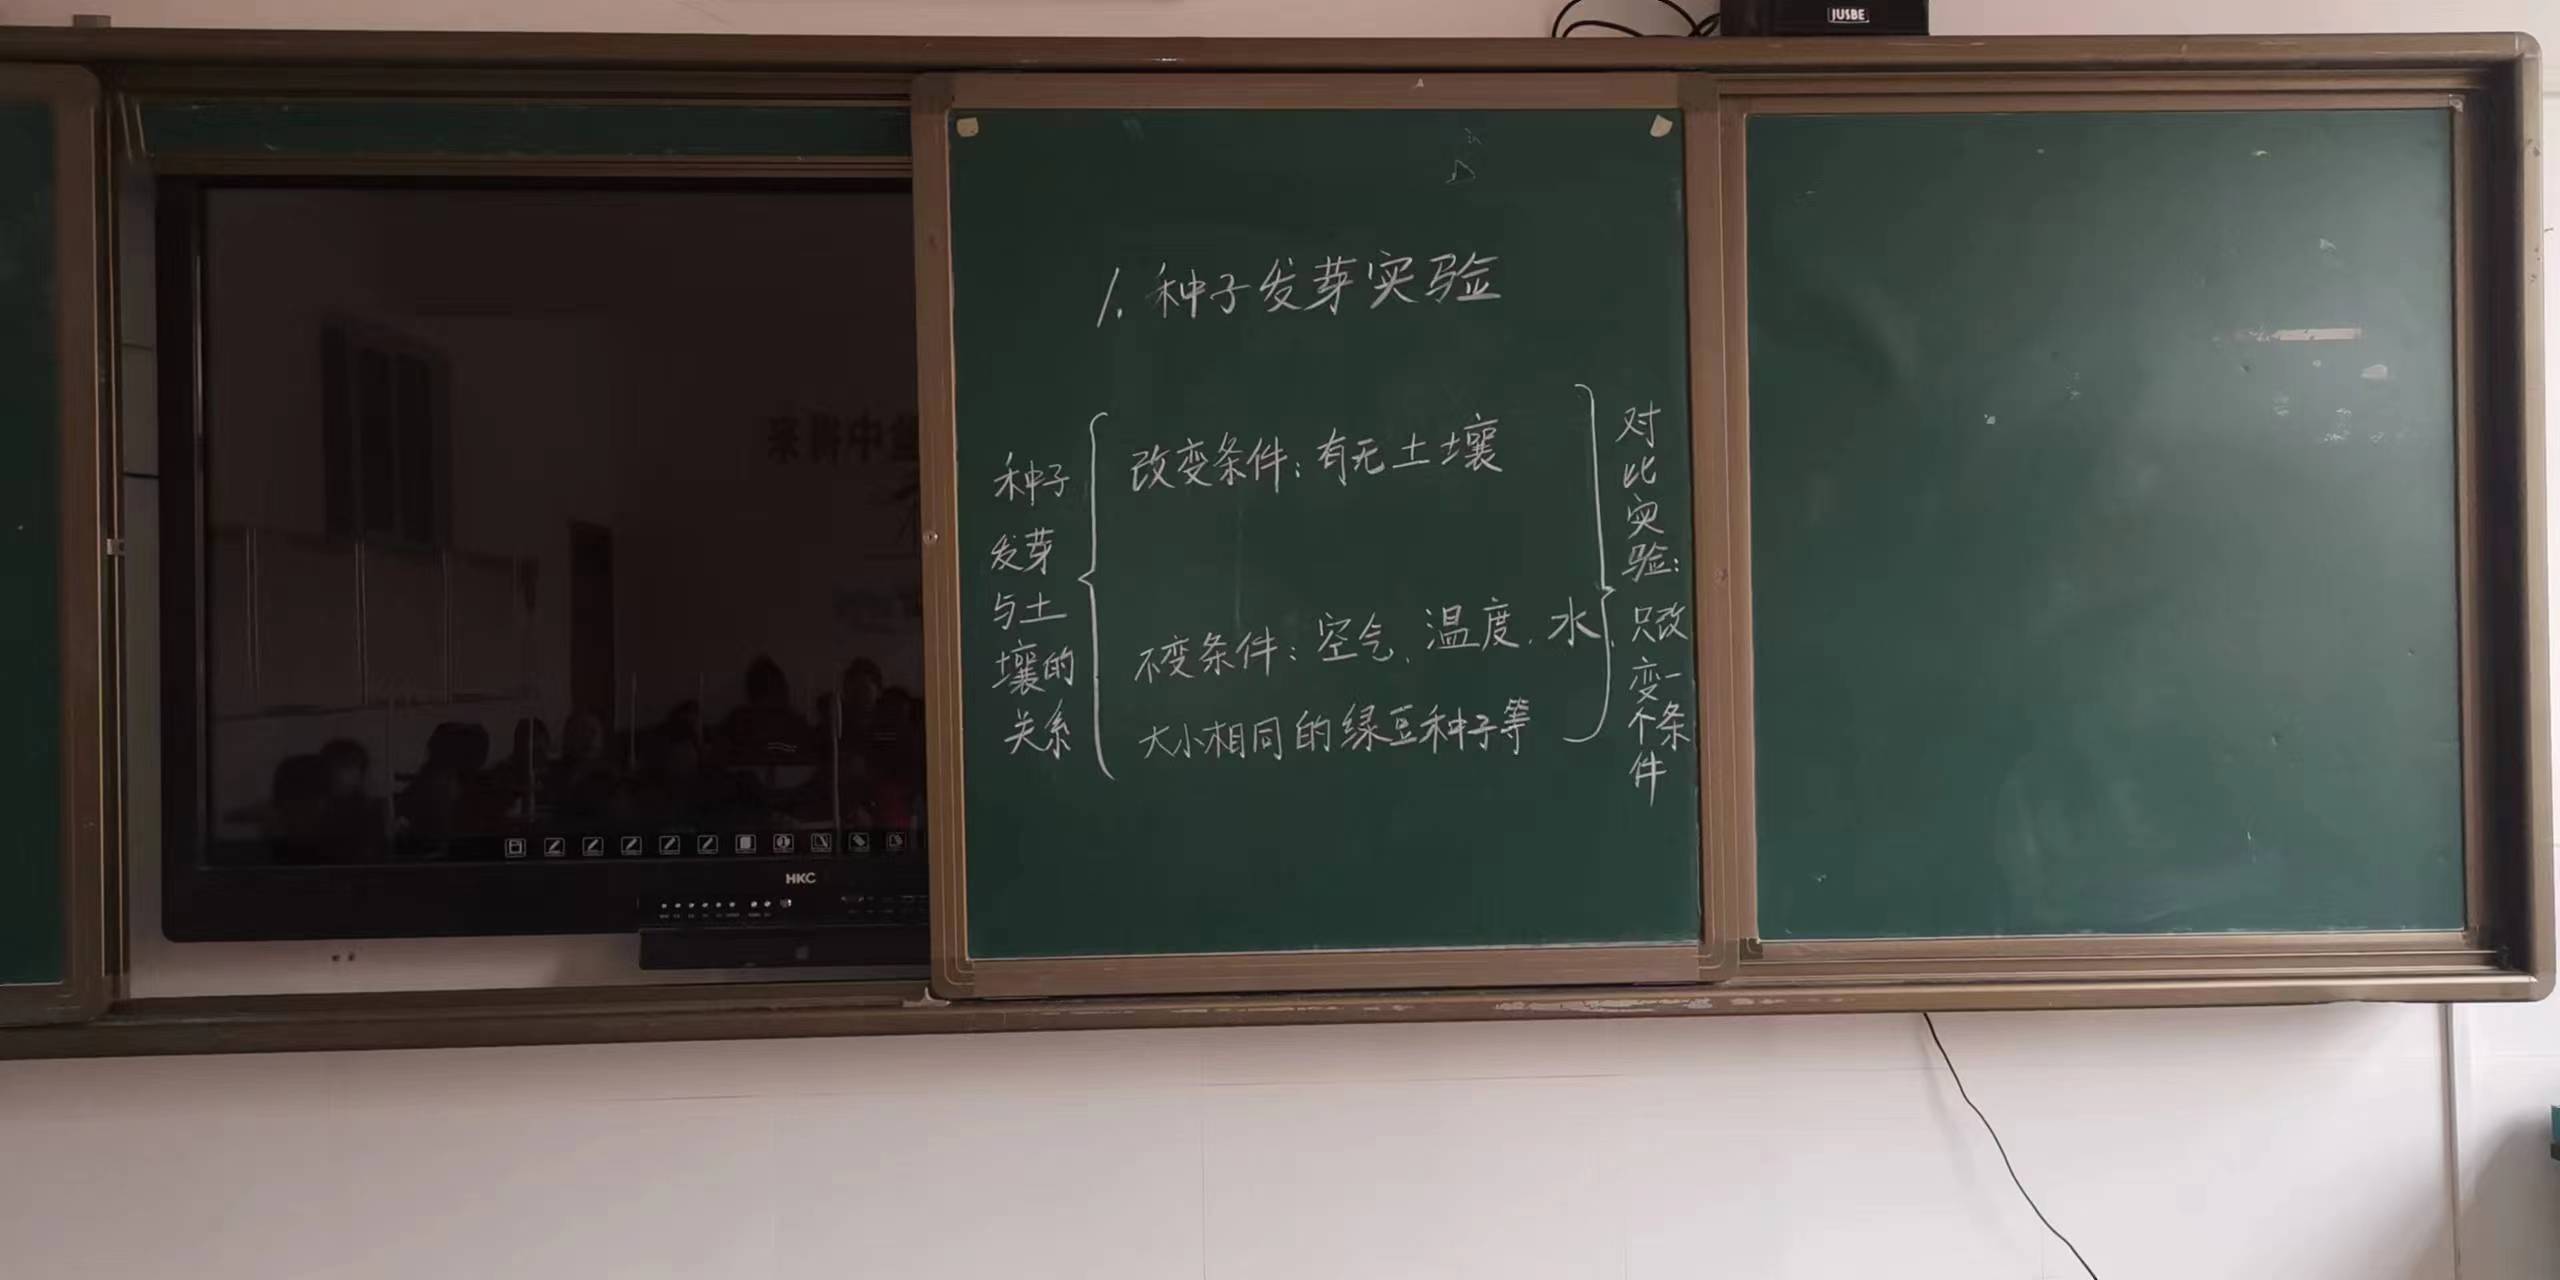 JUSBE
1. 种子发芽实验
种子
发芽
与土
壤的
关系
改变条件：有无土壤
不变条件：空气、温度、水、
大小相同的绿豆种子等
对
比
实
验：
只改
变一
个条
件
HKC